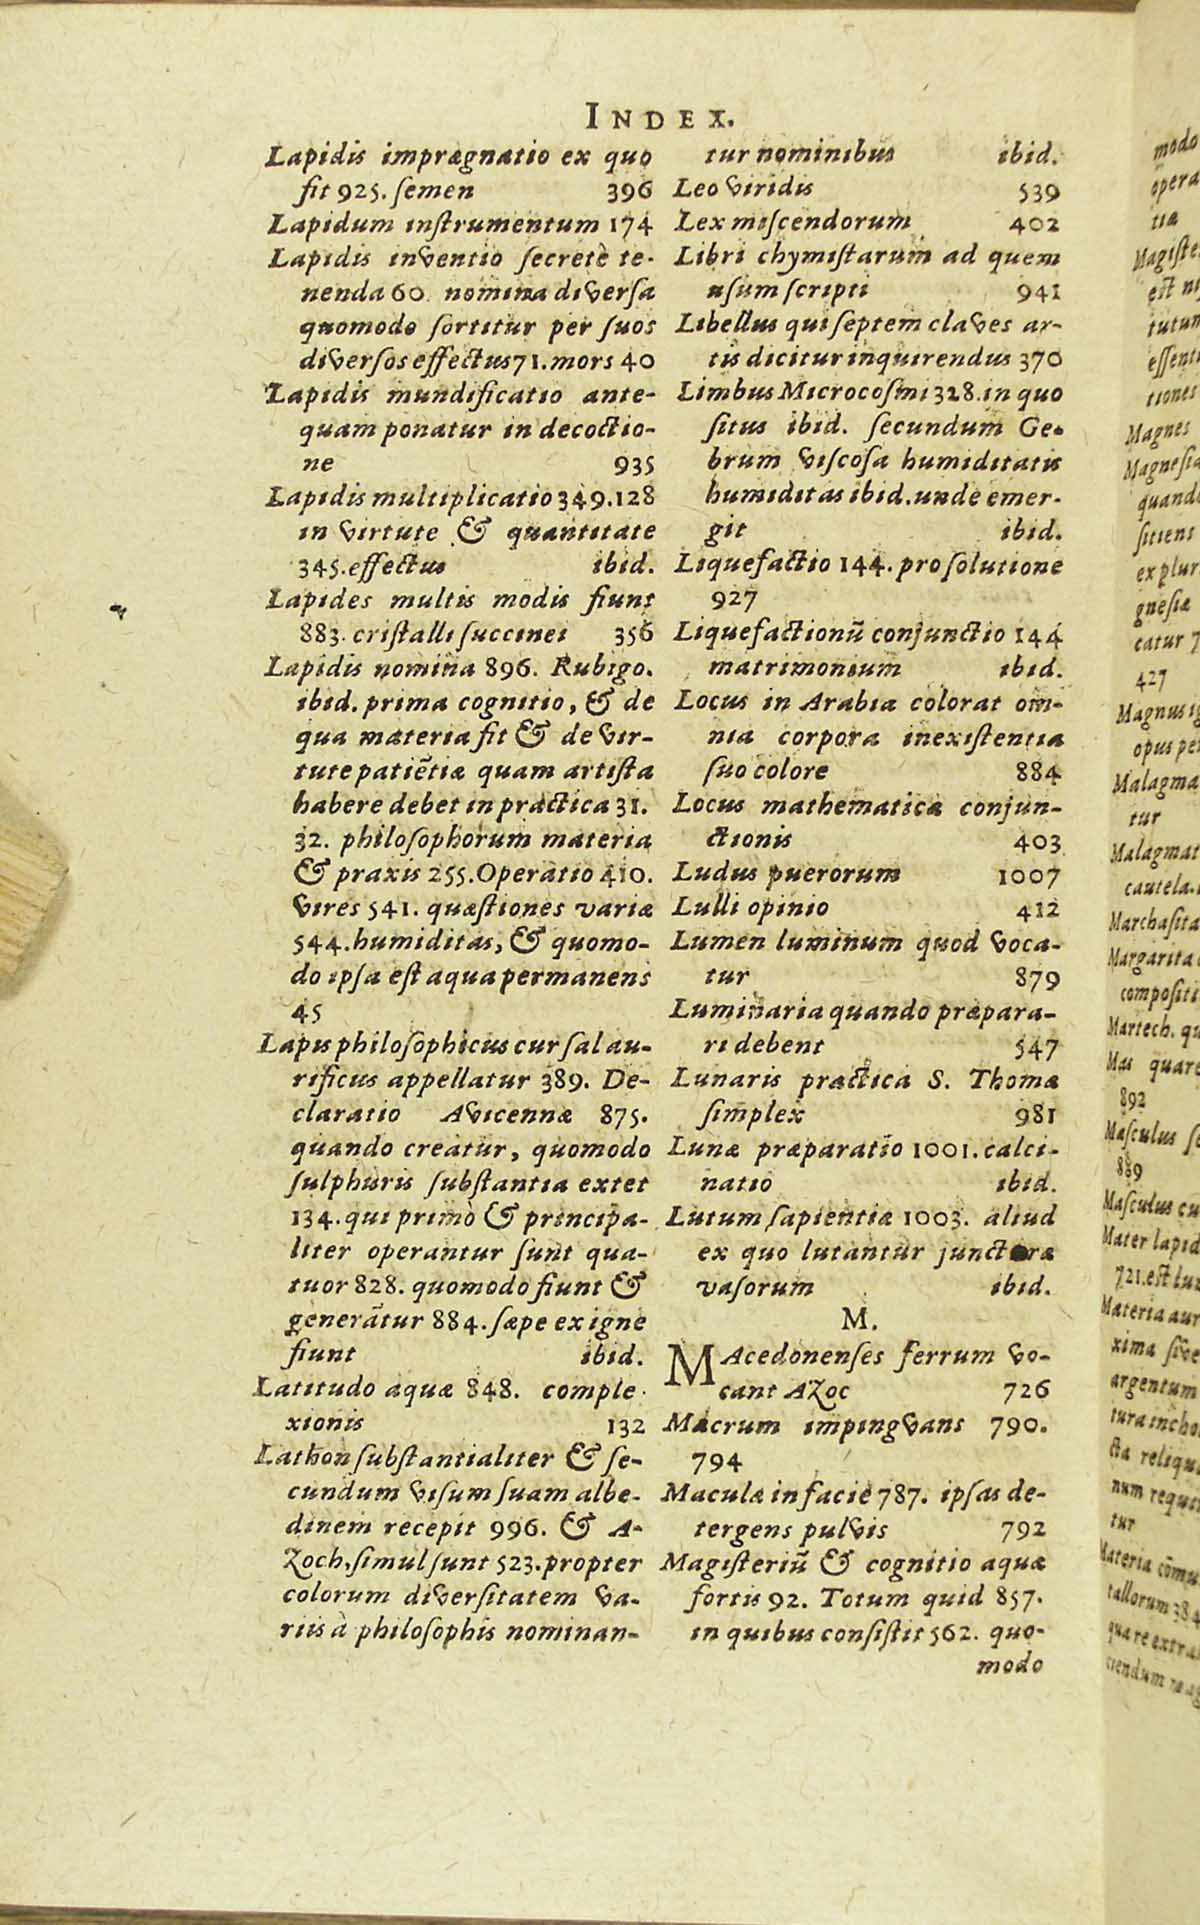 INDEX.
Lapidis imprægnatio ex quo
fit 925. ſemen 396
Lapidum inſtrumentum 174
Lapidis inventio ſecretè te-
nenda 60. nomina diverſa
quomodo ſortitur per ſuos
diverſos effectus 71. mors 40
Lapidis mundificatio ante-
quam ponatur in decoctio-
ne 935
Lapidis multiplicatio 349. 128
in virtute & quantitate
345. effectus ibid.
Lapides multis modis fiunt
883. criſtalli ſuccinei 356
Lapidis nomina 896. Rubigo.
ibid. prima cognitio, & de
qua materia fit & de vir-
tute patiẽtiæ quam artiſta
habere debet in practica 31.
32. philoſophorum materia
& praxis 255. Operatio 410.
vires 541. quæſtiones variæ
544. humiditas, & quomo-
do ipſa eſt aqua permanens
45
Lapis philoſophicus cur ſal au-
rificus appellatur 389. De-
claratio Avicennæ 875.
quando creatur, quomodo
ſulphuris ſubſtantia extet
134. qui primò & principa-
liter operantur ſunt qua-
tuor 828. quomodo fiunt &
generãtur 884. ſæpe ex igne
fiunt ibid.
Latitudo aquæ 848. comple-
xionis 132
Lathon ſubſtantialiter & ſe-
cundum viſum ſuam albe-
dinem recepit 996. & A-
zoch. ſimul ſunt 523. propter
colorum diverſitatem va-
riis à philoſophis nominan-
tur nominibus ibid.
Leo viridis 539
Lex miſcendorum 402
Libri chymiſtarum ad quem
uſum ſcripti 941
Libellus qui ſeptem claves ar-
tis dicitur inquirendus 370
Limbus Microcoſmi 328. in quo
ſitus ibid. ſecundum Ge-
brum viſcoſa humiditatis
humiditas ibid. unde emer-
git ibid.
Liquefactio 144. pro ſolutione
927
Liquefactionũ conjunctio 144
matrimonium ibid.
Locus in Arabia colorat om-
nia corpora inexiſtentia
ſuo colore 884
Locus mathematicæ conjun-
ctionis 403
Ludus puerorum 1007
Lulli opinio 412
Lumen luminum quod voca-
tur 879
Luminaria quando præpara-
ri debent 547
Lunaris practica S. Thomæ
ſimplex 981
Lunæ præparatio 1001. calci-
natio ibid.
Lutum ſapientiæ 1003. aliud
ex quo lutantur juncturæ
vaſorum ibid.
M.
MAcedonenſes ferrum vo-
cant Azoc 726
Macrum impingvans 790.
794
Maculæ in facie 787. ipſas de-
tergens pulvis 792
Magiſteriũ & cognitio aquæ
fortis 92. Totum quid 857.
in quibus conſiſtit 562. quo-
modo
modo
opera
tia
Magiſte
eſt ni
tutum
eſſenti
tiones
Magnes
Magneſia
quando
ſitient
ex plur
gneſiæ
catur 7
427
Magnus ig
opus per
Malagma
tur
Malagmat
cautela.
Marchaſita
Margarita
compoſiti
Martech. qu
Mas quare
892
Maſculus ſe
889
Maſculus cu
Mater lapid
721. eſt lu
Materia aur
xima ſive
argentum
tura incho
cta reliqu
num requi
tur
Materia cõmu
tallorum 384
quare extra
ciendum